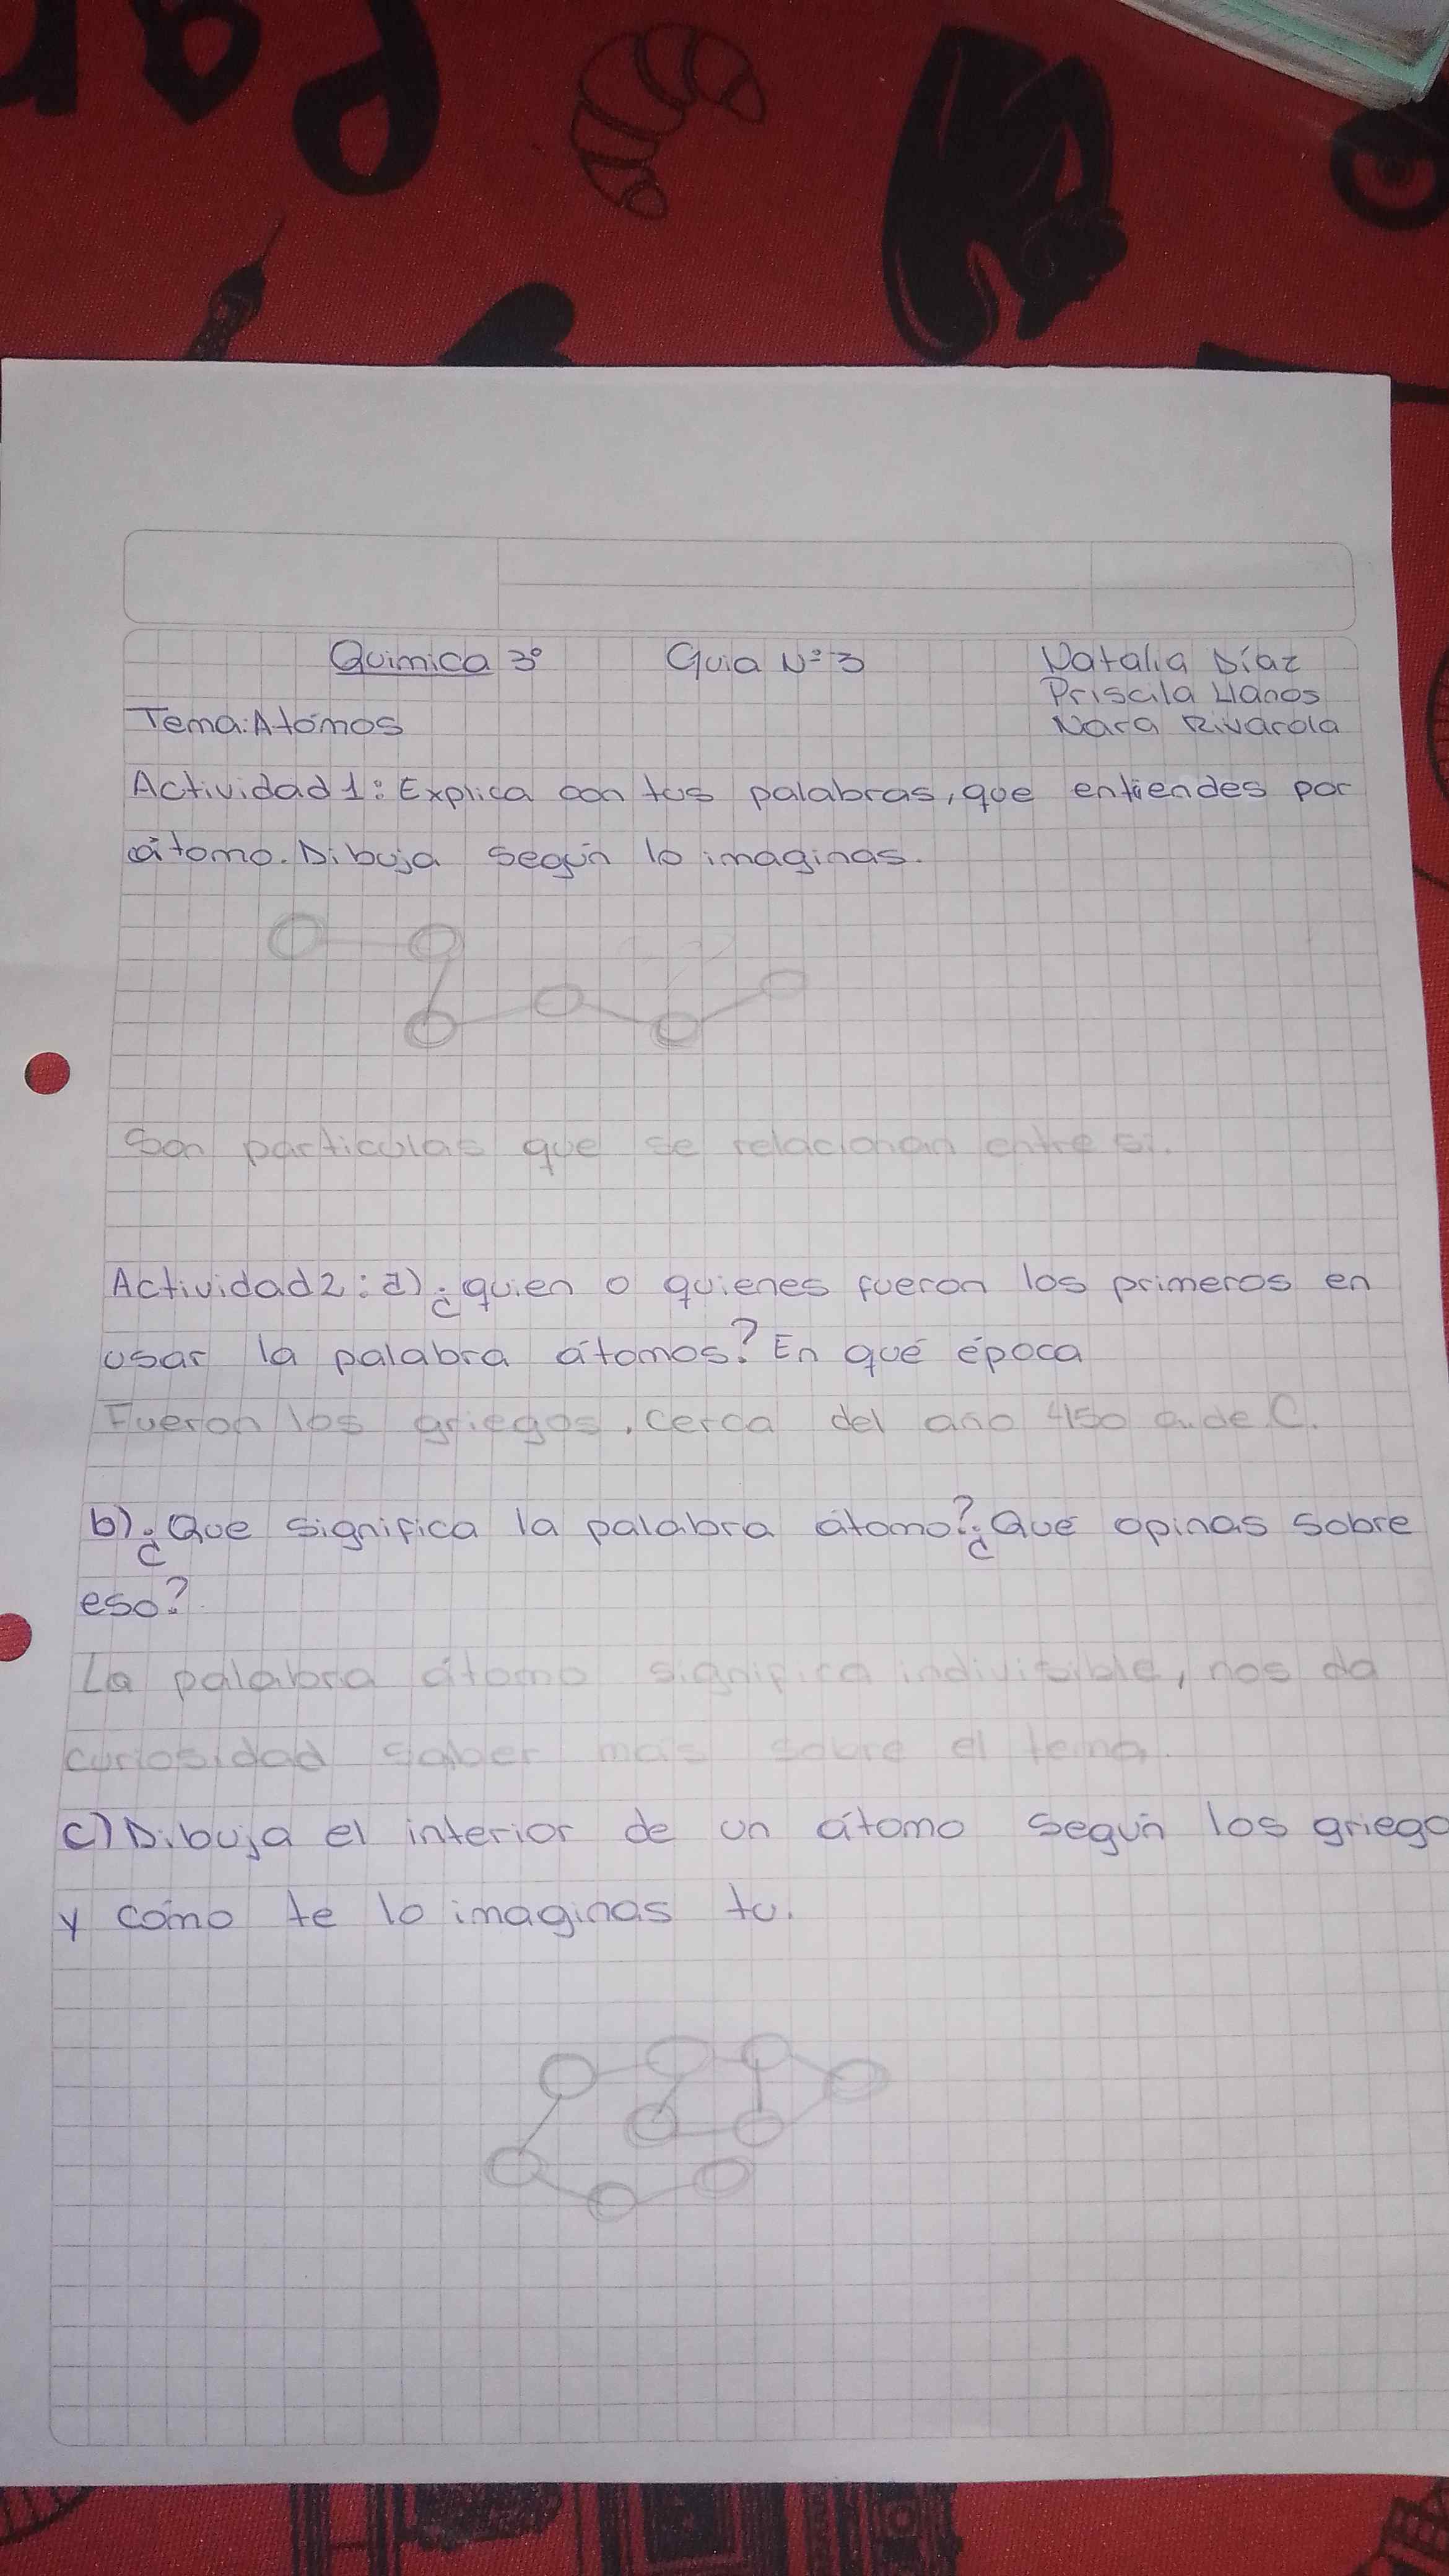 Química 3° Guia N° 3 Natalia Díaz
Priscila Llanos
Tema: Atómos Nara Rivarola
Actividad 1: Explica con tus palabras, que entiendes por
átomo. Dibuja según lo imaginas.
Son particulas que se relacionan entre si.
Actividad 2: a) ¿quien o quienes fueron los primeros en
usar la palabra átomos? En qué época
Fueron los griegos, cerca del año 450 a.de C.
b) ¿Que significa la palabra átomo? ¿Qué opinas sobre
eso?
La palabra átomo significa indivisible, nos da
curiosidad saber más sobre el tema.
c) Dibuja el interior de un átomo según los griego
y cómo te lo imaginas tu.